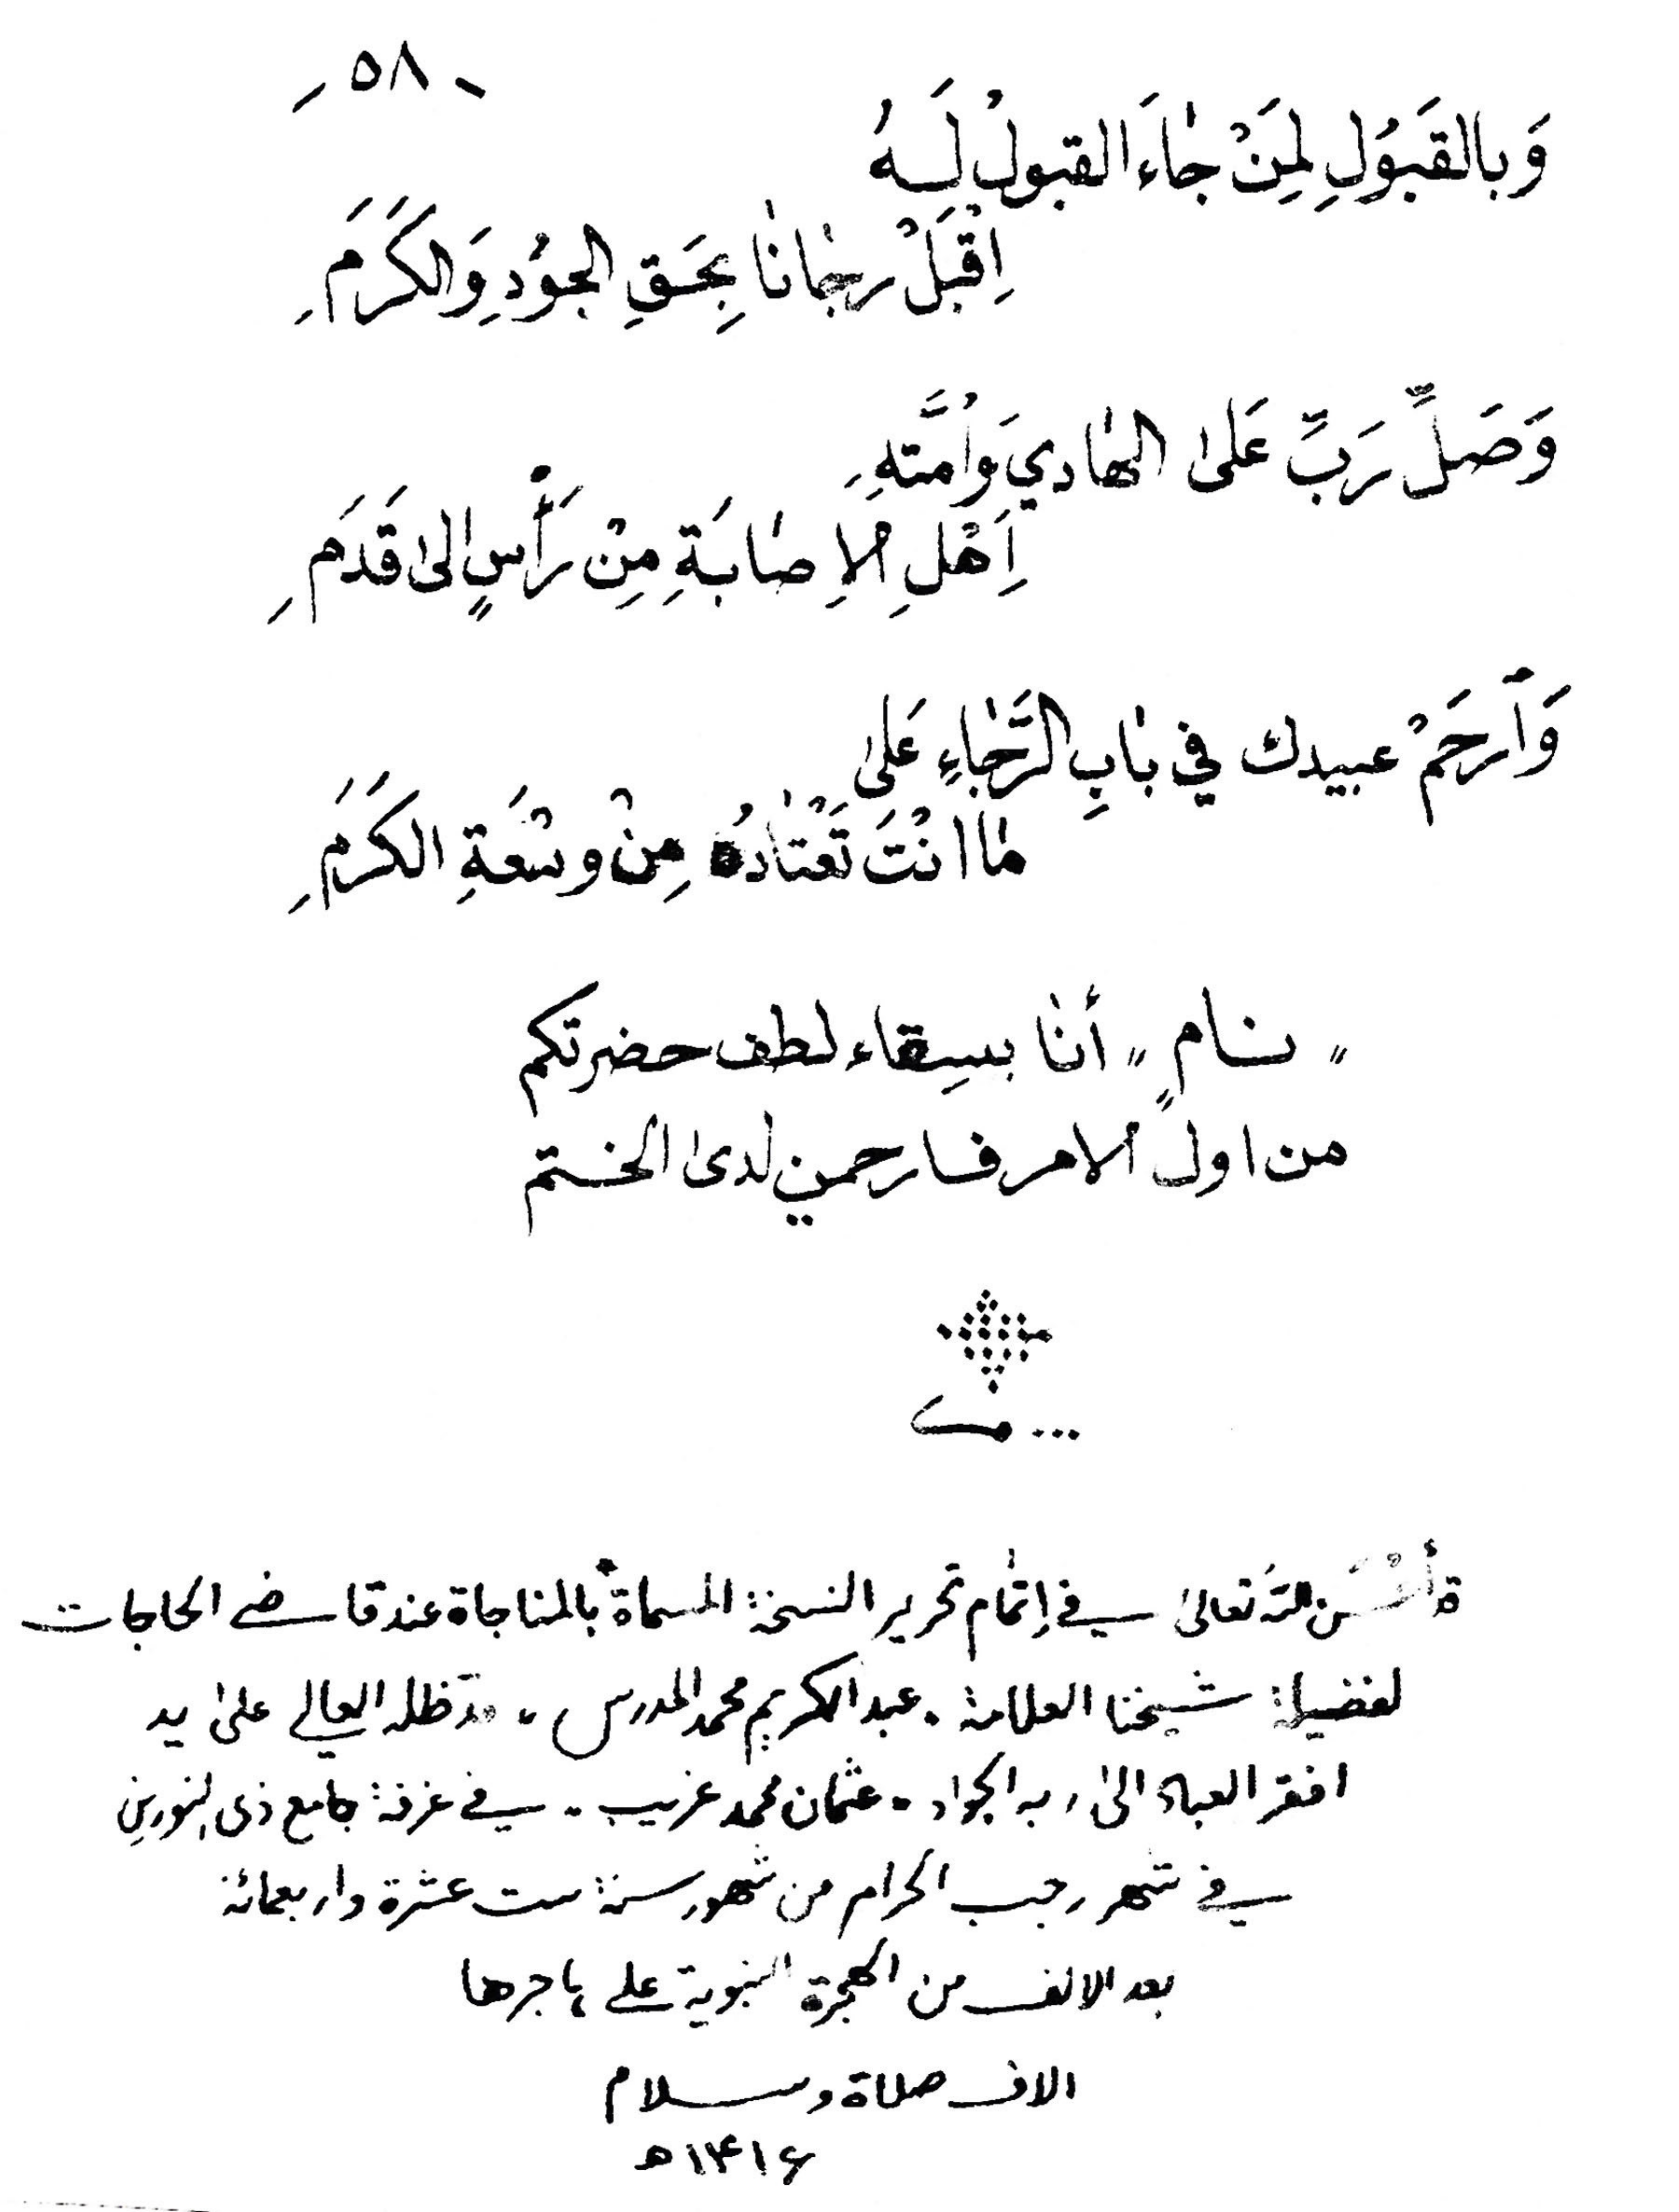 - ٥٨ -
وَبالقَبُولِ لِمَنْ جٰاءَ القبولُ لَهُ
اِقْبَلْ رجٰانٰا بِحَقِ الجُودِ وَالكَرَمِ
وَصَلِّ رَبِّ عَلىٰ الهٰادي وَاُمَّتهِ
اَهْلِ الاِصٰابَةِ مِنْ رَأْسٍ الىٰ قَدَمِ
وَٱرحَمْ عبيدك في بٰابِ الرَّجٰاءِ عَلىٰ
مٰا انْتَ تَعْتٰادُهُ مِنْ وسْعَةِ الكَرَمِ
" نـامٍ " أنٰا بسِقاء لطف حضرتكم
من اول الامر فارحمني لدى الختم
... مـ
قد أحْسَن اللّٰه تعالىٰ في اِتمٰام تحرير النسخة المسماة بالمناجاة عند قاضي الحاجات
لفضيلة شيخنا العلامة . عبد الكريم محمد المدرس ، مدّ ظله العالي علىٰ يد
افقر العباد الىٰ ربه الجواد . عثمان محمد غريب . في غرفة جامع ذى النورين
في شهر رجب الحرام من شهور سنة ست عشرة واربعمائة
بعد الالف من الهجرة النبوية على هاجرها
الاف صلاة وسلام
١٤١٦ ه